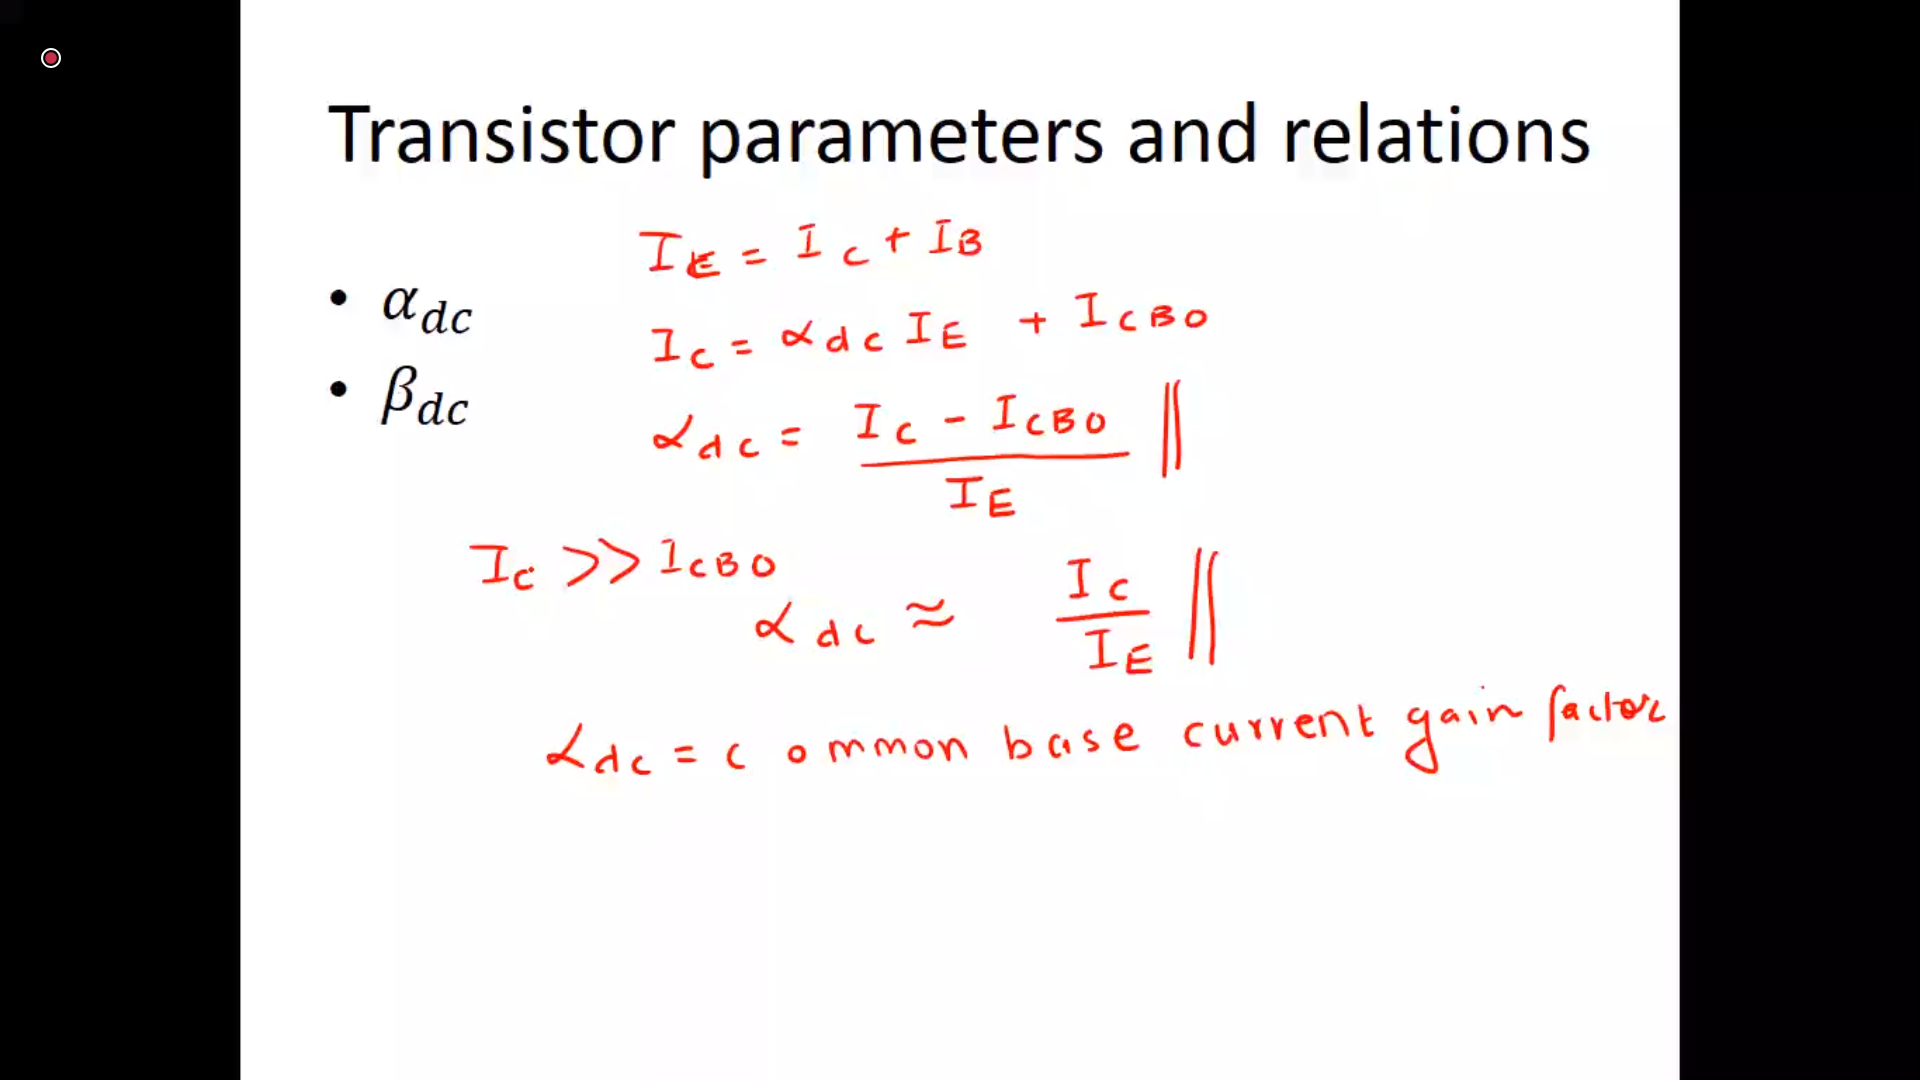 Transistor parameters and relations
I_E = I_C + I_B
• α_dc
I_C = α_dc I_E + I_CBO
• β_dc
α_dc = (I_C - I_CBO) / I_E ||
I_C >> I_CBO
α_dc ≈ I_C / I_E ||
α_dc = common base current gain factor